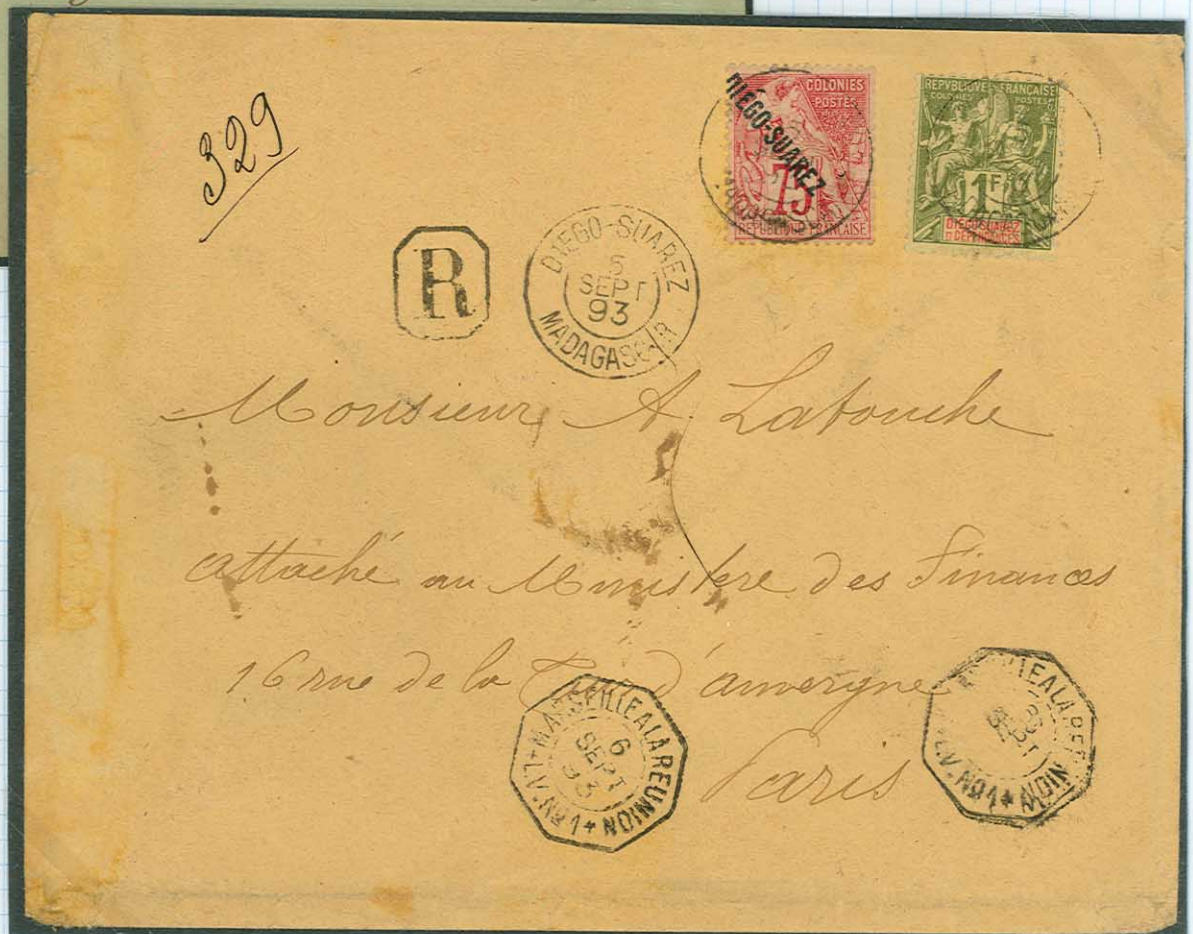 329
COLONIES
POSTES
DIÉGO-SUAREZ
75
REPUBLIQUE FRANÇAISE
REPUBLIQUE FRANÇAISE
COLONIES POSTES
1F
DIEGO-SUAREZ
ET DEPENDANCES
R
DIEGO-SUAREZ
5
SEPT
93
MADAGASCAR
Monsieur A. Latouche
attaché au Ministere des Finances
16 rue de la Tour d'auvergne
Paris
MARSEILLE A LA REUNION
6
SEPT
93
L.V. No 1
LA RE
SEPT
L.V. No 1